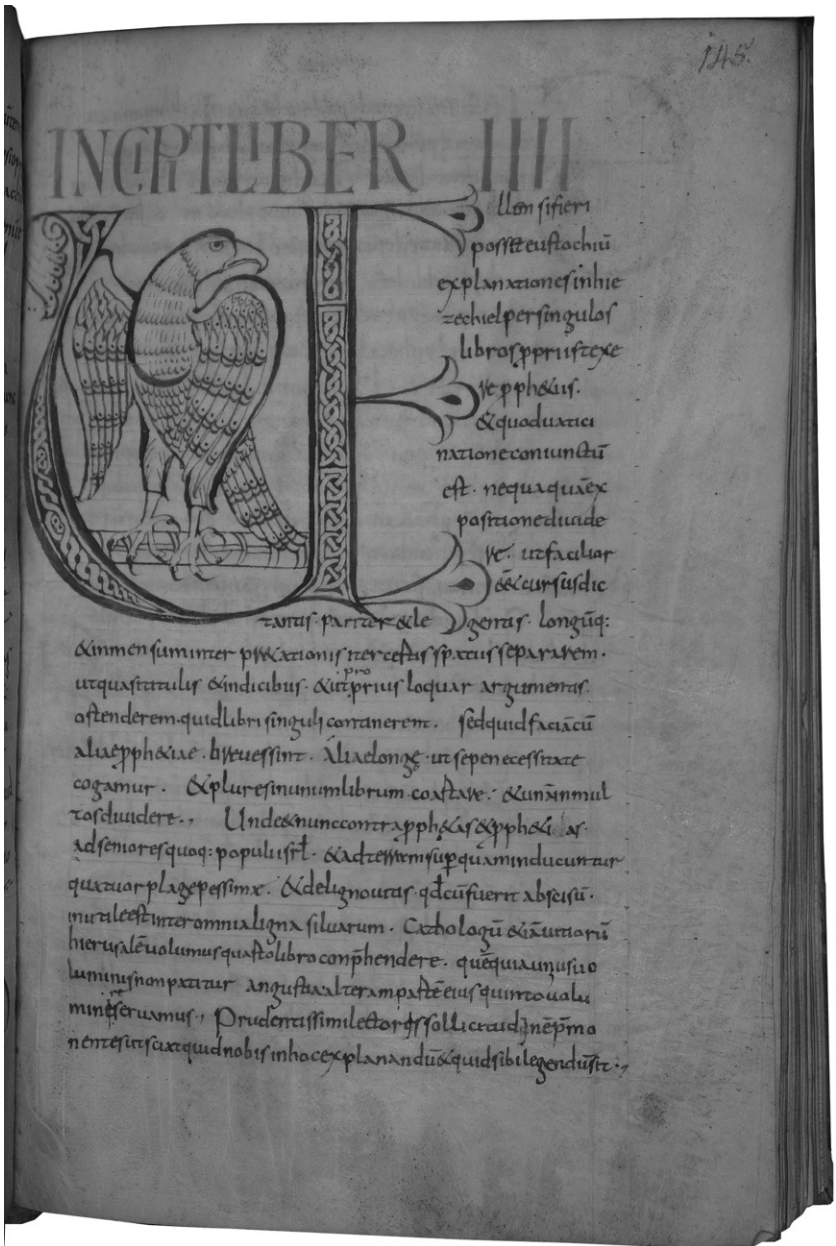 145.
INCIPIT LIBER IIII
UEllem si fieri
possèt eustochiū
explanationes in hie
zechiel per singulos
libros ꝓpriis texe
re ꝓph&iis.
& quod uatici
natione coniunctū
est. nequaquā ex
positione diuide
re. ut facilior
eēt cursus dic
tantis. pariter & le gentis. longūq:
& inmensum inter pr&ationis iter certis spatiis separarem.
ut quasi titulis & indicibus. & ut ꝓprius loquar argumentis.
pro
ostenderem. quid libri singuli contanerent. sed quid faciā cū
aliae ꝓph&iae. breues sint. Aliae longę. ut sepe necessitate
cogamur. & plures in unum librum. coartare. & unā in mul
tos diuidere., Unde & nunc contra ꝓph&as & ꝓph&i as.
ad seniores quoq: populi isrl̄. & ad terrem suꝑ quam inducuntur
quatuor plage pessimæ. & de ligno uitis. qd̄ cū fuerit abscisū.
inutile est inter omnia ligna siluarum. Cathologū &iā uitiorū
hierusalē uolumus quarto libro conp̄hendere. quē quia unus uo
luminis non patitur angustia. alteram partē eius quinto uolu
mini seruamus., Prudentissimi lectoris sollicitudinē p̄mo
nentes ut sciat quid nobis in hoc explanandū & quid sibi legendū sit.,